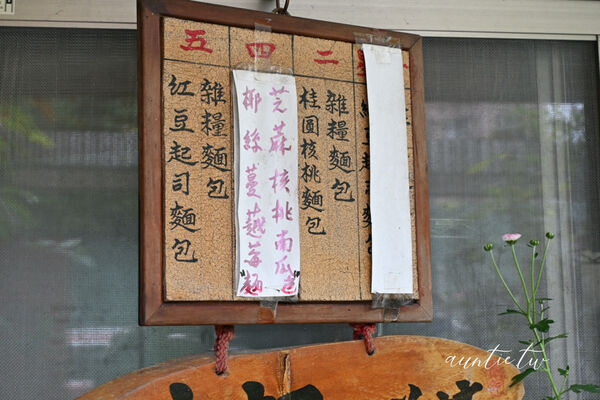 二
雜糧麵包
桂圓核桃麵包
四
芝蔴核桃南瓜
椰絲蔓越莓麵
五
雜糧麵包
紅豆起司麵包
auntie.tw